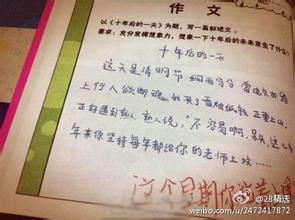 作 文
以《十年后的一天》为题,写一篇叙述文。
要求:充分发挥想象力,想象一下十年后的未来发生了什么?
十年后的一
这天是清明节 细雨纷纷
上行人欲断魂 我买了 纸钱 正要上山
正好遇到熟人,熟人说,"不容易啊, 这么多
年来你坚持每年都给你的老师上坟……
这个星期你
@28精选
weibo.com/u/2472417872